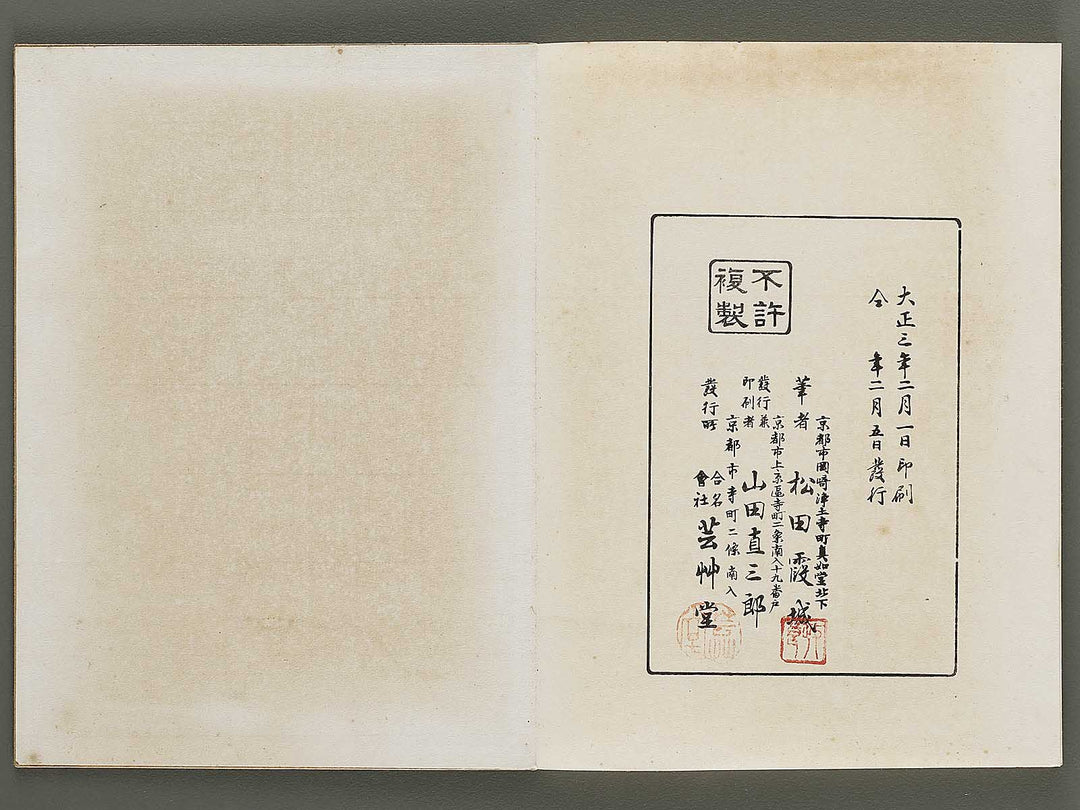 大正三年二月一日印刷
仝年二月五日發行
不許
複製
京都市岡崎淨土寺町真如堂北下
筆者 松田霞城
京都市上京區寺町二条南入十九番戸
發行兼
印刷者 山田直三郎
京都市寺町二條南入
發行所 合名
會社 芸艸堂